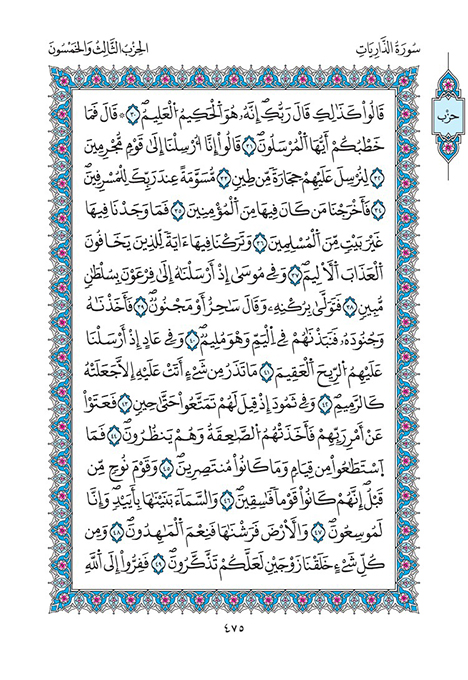 سُورَةُ الذَّارِيَاتِ
الحِزْبُ الثَّالِثُ وَالخَمْسُونَ
حزب
قَالُواْ كَذَٰلِكِ قَالَ رَبُّكِ إِنَّهُۥ هُوَ اَلْحَكِيمُ اُلْعَلِيمُ ٣٠ ۞ قَالَ فَمَا
خَطْبُكُمْ أَيُّهَا اَلْمُرْسَلُونَ ٣١ قَالُواْ إِنَّا أُرْسِلْنَا إِلَىٰ قَوْمٖ مُّجْرِمِينَ
٣٢ لِنُرْسِلَ عَلَيْهِمْ حِجَارَةٗ مِّن طِينٖ ٣٣ مُّسَوَّمَةً عِندَ رَبِّكَ لِلْمُسْرِفِينَ
٣٤ فَأَخْرَجْنَا مَن كَانَ فِيهَا مِنَ اَلْمُؤْمِنِينَ ٣٥ فَمَا وَجَدْنَا فِيهَا
غَيْرَ بَيْتٖ مِّنَ اَلْمُسْلِمِينَ ٣٦ وَتَرَكْنَا فِيهَا ءَايَةٗ لِّلذِينَ يَخَافُونَ
اَلْعَذَابَ اَلْأَلِيمَ ٣٧ وَفِي مُوسَىٰ إِذْ أَرْسَلْنَٰهُ إِلَىٰ فِرْعَوْنَ بِسُلْطَٰنٖ
مُّبِينٖ ٣٨ فَتَوَلَّىٰ بِرُكْنِهِۦ وَقَالَ سَٰحِرٌ أَوْ مَجْنُونٞ ٣٩ فَأَخَذْنَٰهُ
وَجُنُودَهُۥ فَنَبَذْنَٰهُمْ فِي اِلْيَمِّ وَهُوَ مُلِيمٞ ٤٠ وَفِي عَادٍ إِذْ أَرْسَلْنَا
عَلَيْهِمُ اُلرِّيحَ اَلْعَقِيمَ ٤١ مَا تَذَرُ مِن شَيْءٍ أَتَتْ عَلَيْهِ إِلَّا جَعَلَتْهُ
كَالرَّمِيمِ ٤٢ وَفِي ثَمُودَ إِذْ قِيلَ لَهُمْ تَمَتَّعُواْ حَتَّىٰ حِينٖ ٤٣ فَعَتَوْاْ
عَنْ أَمْرِ رَبِّهِمْ فَأَخَذَتْهُمُ اُلصَّٰعِقَةُ وَهُمْ يَنظُرُونَ ٤٤ فَمَا
اَسْتَطَٰعُواْ مِن قِيَامٖ وَمَا كَانُواْ مُنتَصِرِينَ ٤٥ وَقَوْمَ نُوحٖ مِّن
قَبْلُ إِنَّهُمْ كَانُواْ قَوْمٗا فَٰسِقِينَ ٤٦ وَالسَّمَآءَ بَنَيْنَٰهَا بِأَيْيْدٖ وَإِنَّا
لَمُوسِعُونَ ٤٧ وَالْأَرْضَ فَرَشْنَٰهَا فَنِعْمَ اَلْمَٰهِدُونَ ٤٨ وَمِن
كُلِّ شَيْءٍ خَلَقْنَا زَوْجَيْنِ لَعَلَّكُمْ تَذَّكَّرُونَ ٤٩ فَفِرُّواْ إِلَى اَللَّهِ
٤٧٥